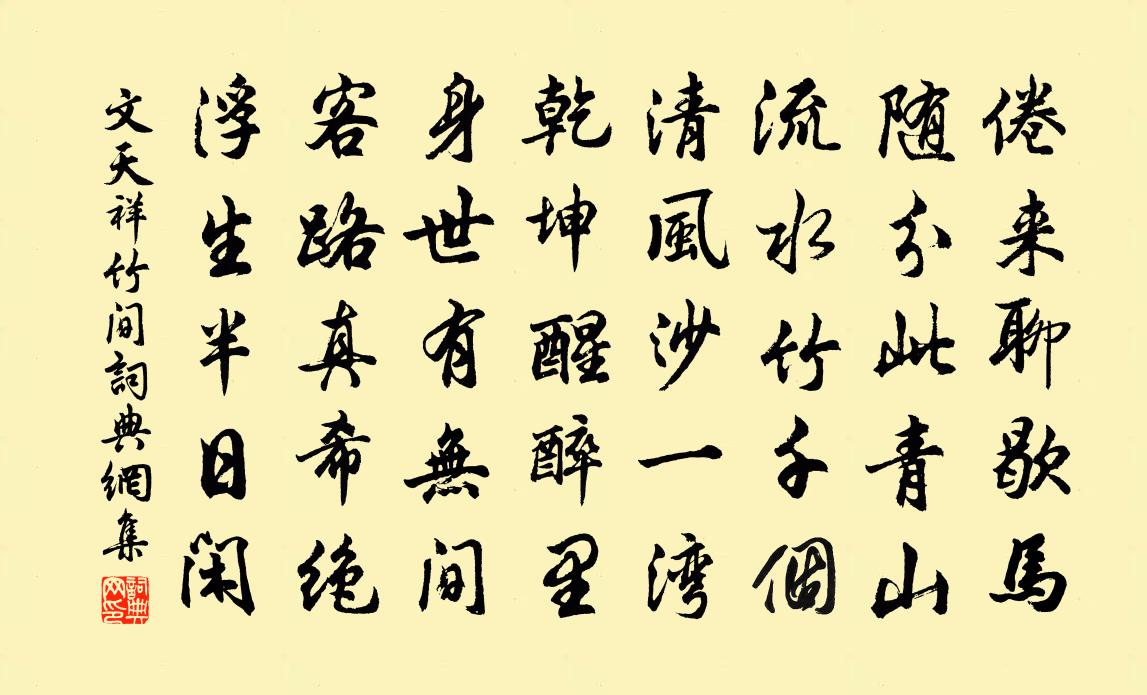 倦来聊歇馬
随分此青山
流水竹千個
清風沙一湾
乾坤醒醉里
身世有無间
客路真希绝
浮生半日闲
文天祥竹间詞典網集
詞典網印